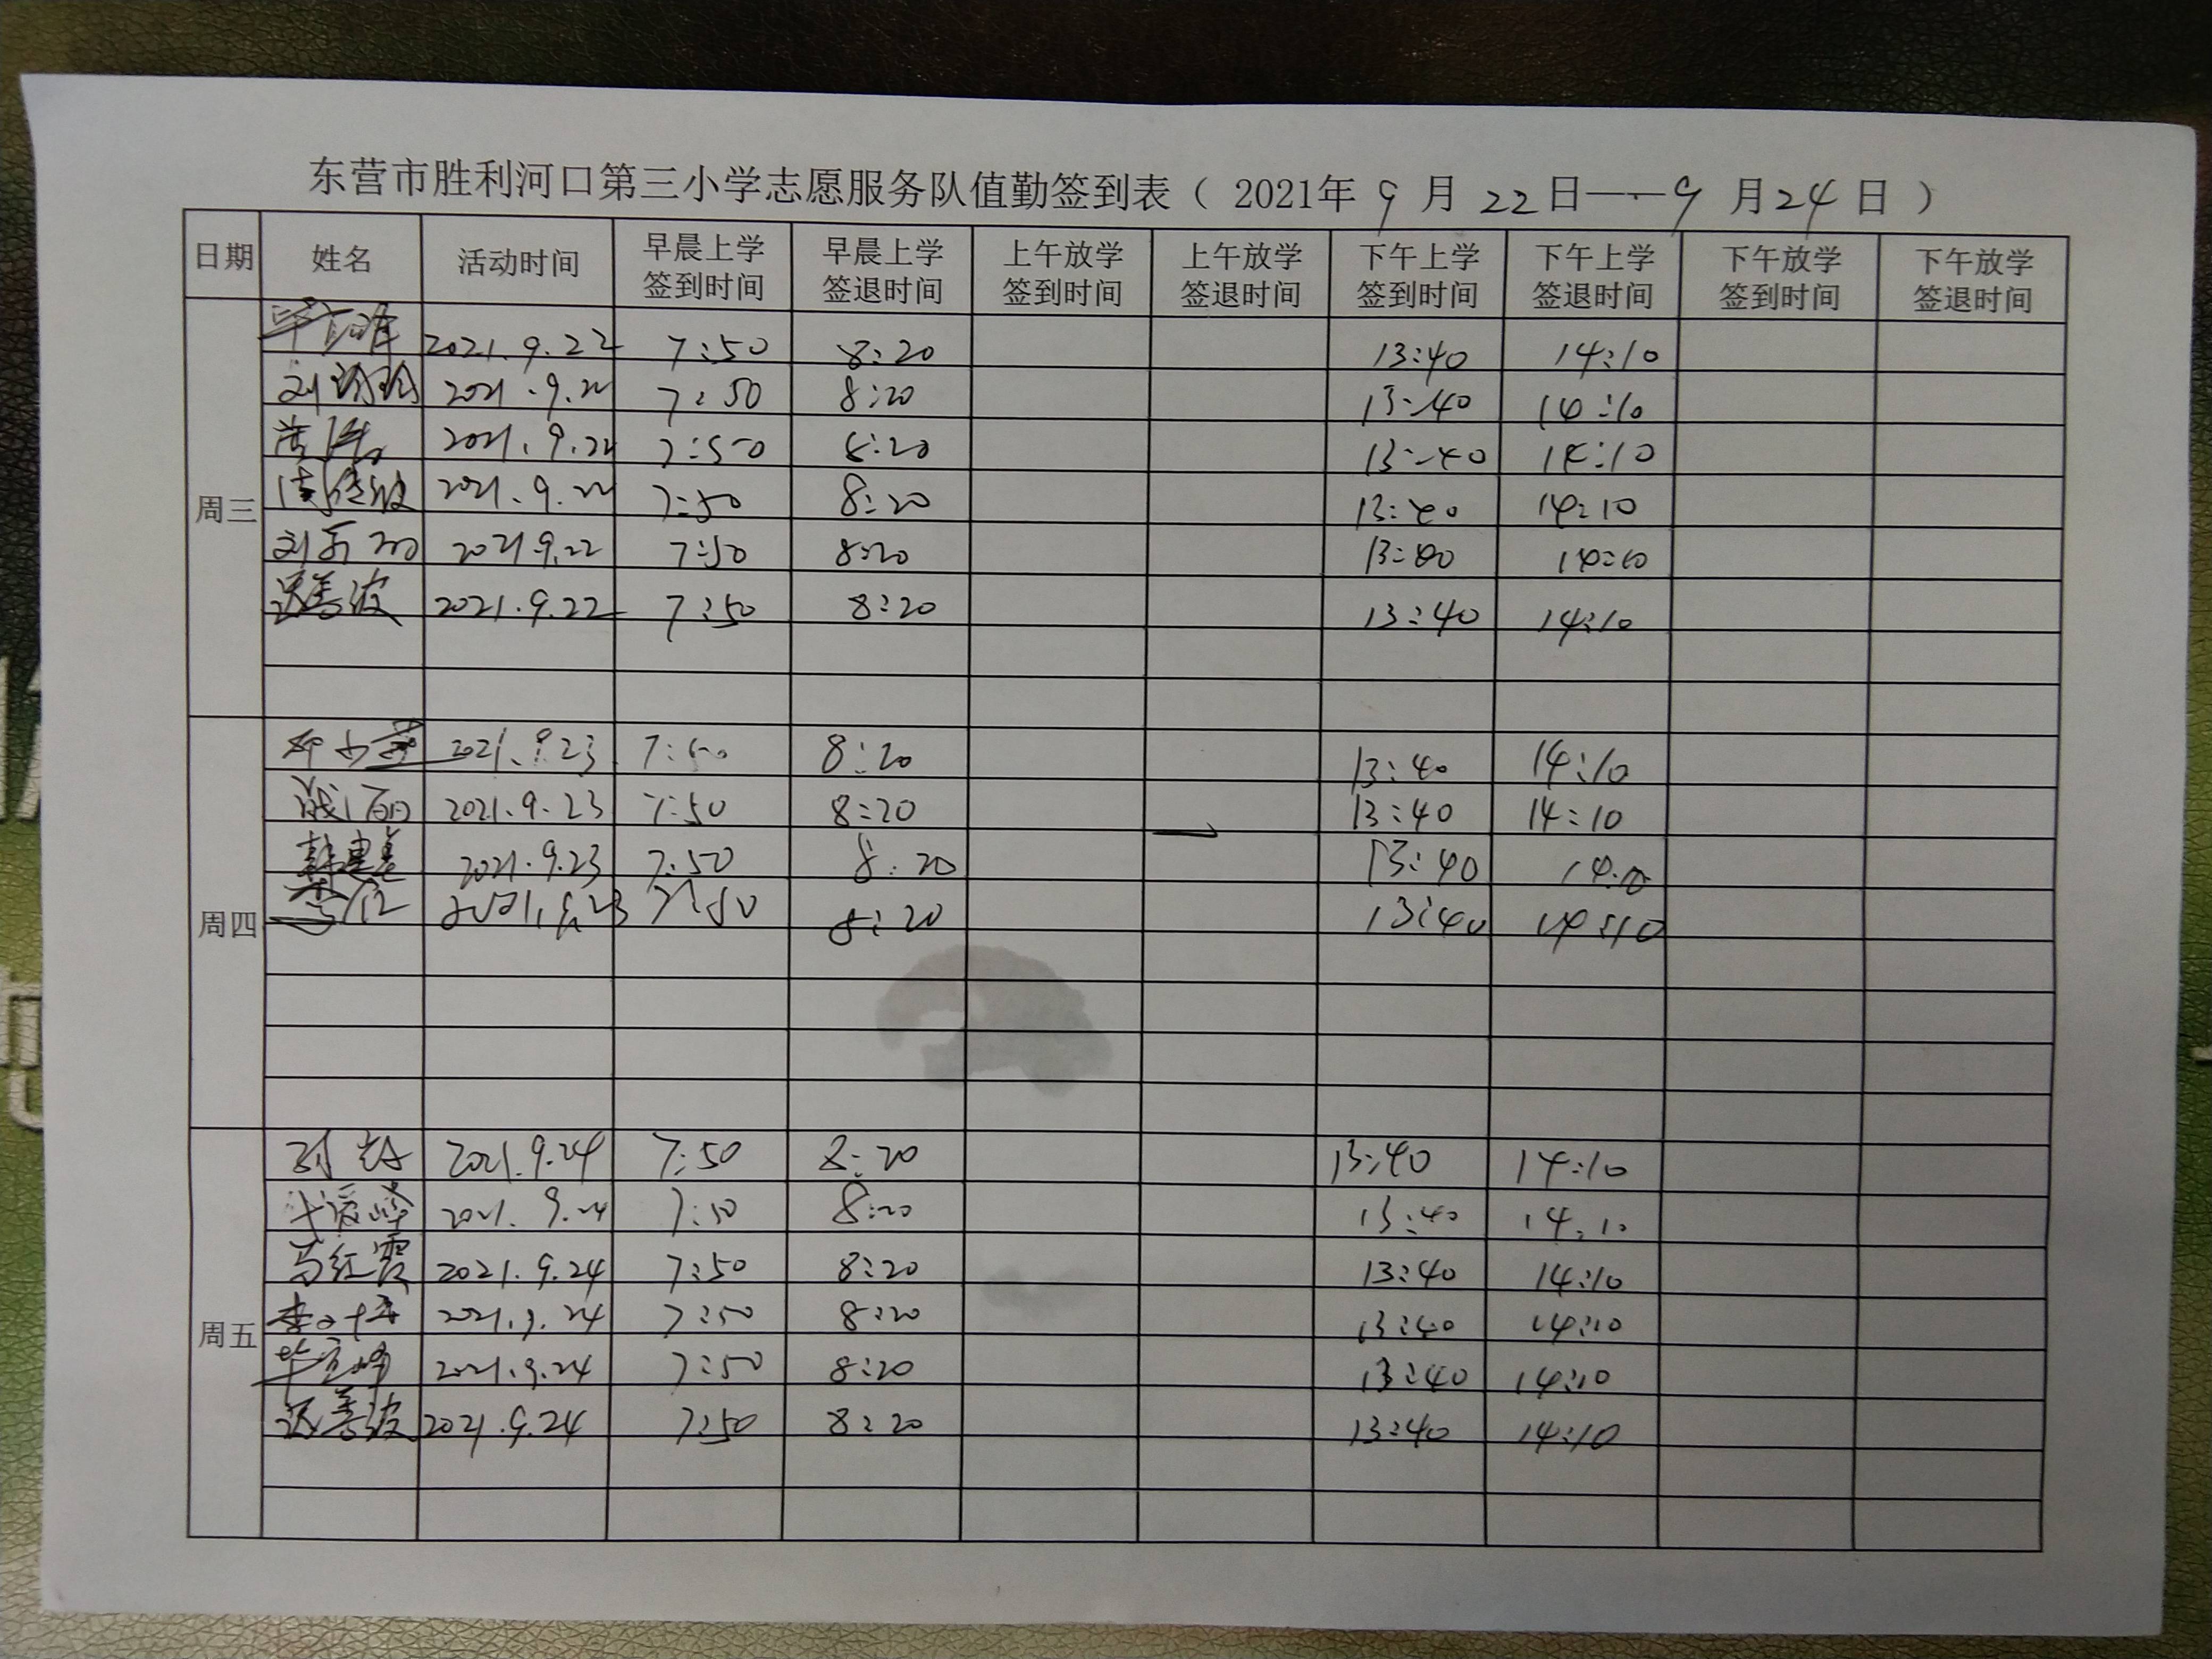 东营市胜利河口第三小学志愿服务队值勤签到表（ 2021年 9 月 22 日——9 月 24 日 ）
日期 姓名 活动时间 早晨上学签到时间 早晨上学签退时间 上午放学签到时间 上午放学签退时间 下午上学签到时间 下午上学签退时间 下午放学签到时间 下午放学签退时间
周三
2021.9.22 7:50 8:20 13:40 14:10
刘 2021.9.22 7:50 8:20 13:40 14:10
2021.9.22 7:50 8:20 13:40 14:10
2021.9.22 7:50 8:20 13:40 14:10
刘 2021.9.22 7:50 8:20 13:40 14:10
迟善波 2021.9.22 7:50 8:20 13:40 14:10
周四
2021.9.23 7:50 8:20 13:40 14:10
2021.9.23 7:50 8:20 13:40 14:10
韩建 2021.9.23 7:50 8:20 13:40 14:10
2021.9.23 7:50 8:20 13:40 14:10
周五
2021.9.24 7:50 8:20 13:40 14:10
2021.9.24 7:50 8:20 13:40 14:10
马红霞 2021.9.24 7:50 8:20 13:40 14:10
李 2021.9.24 7:50 8:20 13:40 14:10
毕 2021.9.24 7:50 8:20 13:40 14:10
迟善波 2021.9.24 7:50 8:20 13:40 14:10